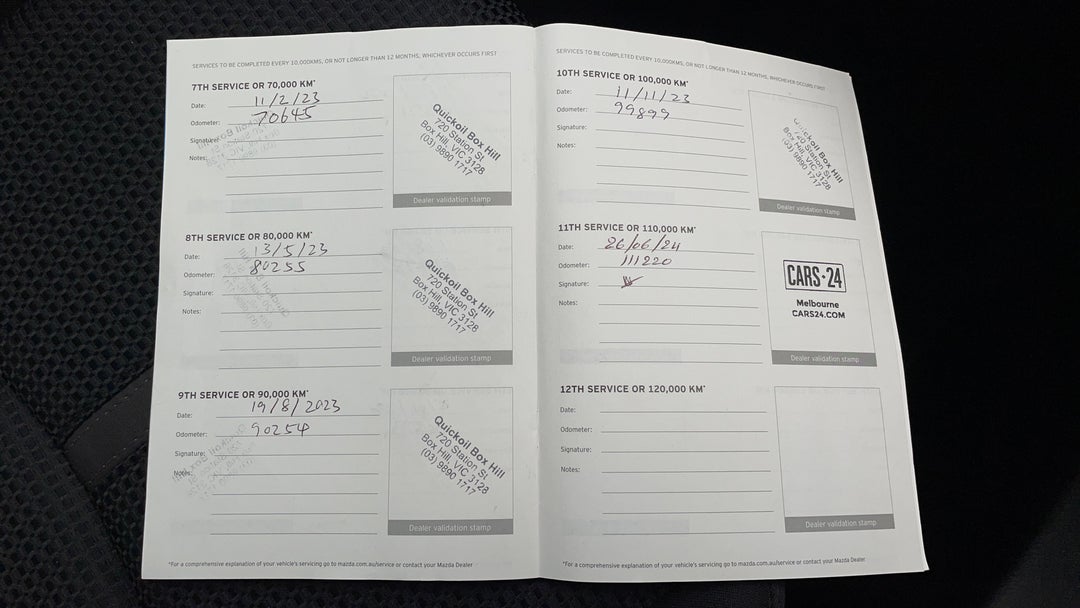 SERVICES TO BE COMPLETED EVERY 10,000KMS, OR NOT LONGER THAN 12 MONTHS, WHICHEVER OCCURS FIRST
7TH SERVICE OR 70,000 KM*
Date: 11/2/23
Odometer: 70645
Signature:
Notes:
Quickoil Box Hill
720 Station St
Box Hill, VIC 3128
(03) 9890 1717
Dealer validation stamp
8TH SERVICE OR 80,000 KM*
Date: 13/5/23
Odometer: 80255
Signature:
Notes:
Quickoil Box Hill
720 Station St
Box Hill, VIC 3128
(03) 9890 1717
Dealer validation stamp
9TH SERVICE OR 90,000 KM*
Date: 19/8/2023
Odometer: 90254
Signature:
Notes:
Quickoil Box Hill
720 Station St
Box Hill, VIC 3128
(03) 9890 1717
Dealer validation stamp
*For a comprehensive explanation of your vehicle's servicing go to mazda.com.au/service or contact your Mazda Dealer
SERVICES TO BE COMPLETED EVERY 10,000KMS, OR NOT LONGER THAN 12 MONTHS, WHICHEVER OCCURS FIRST
10TH SERVICE OR 100,000 KM*
Date: 11/11/23
Odometer: 99899
Signature:
Notes:
Quickoil Box Hill
720 Station St
Box Hill, VIC 3128
(03) 9890 1717
Dealer validation stamp
11TH SERVICE OR 110,000 KM*
Date: 26/06/24
Odometer: 111220
Signature:
Notes:
CARS24
Melbourne
CARS24.COM
Dealer validation stamp
12TH SERVICE OR 120,000 KM*
Date:
Odometer:
Signature:
Notes:
Dealer validation stamp
*For a comprehensive explanation of your vehicle's servicing go to mazda.com.au/service or contact your Mazda Dealer